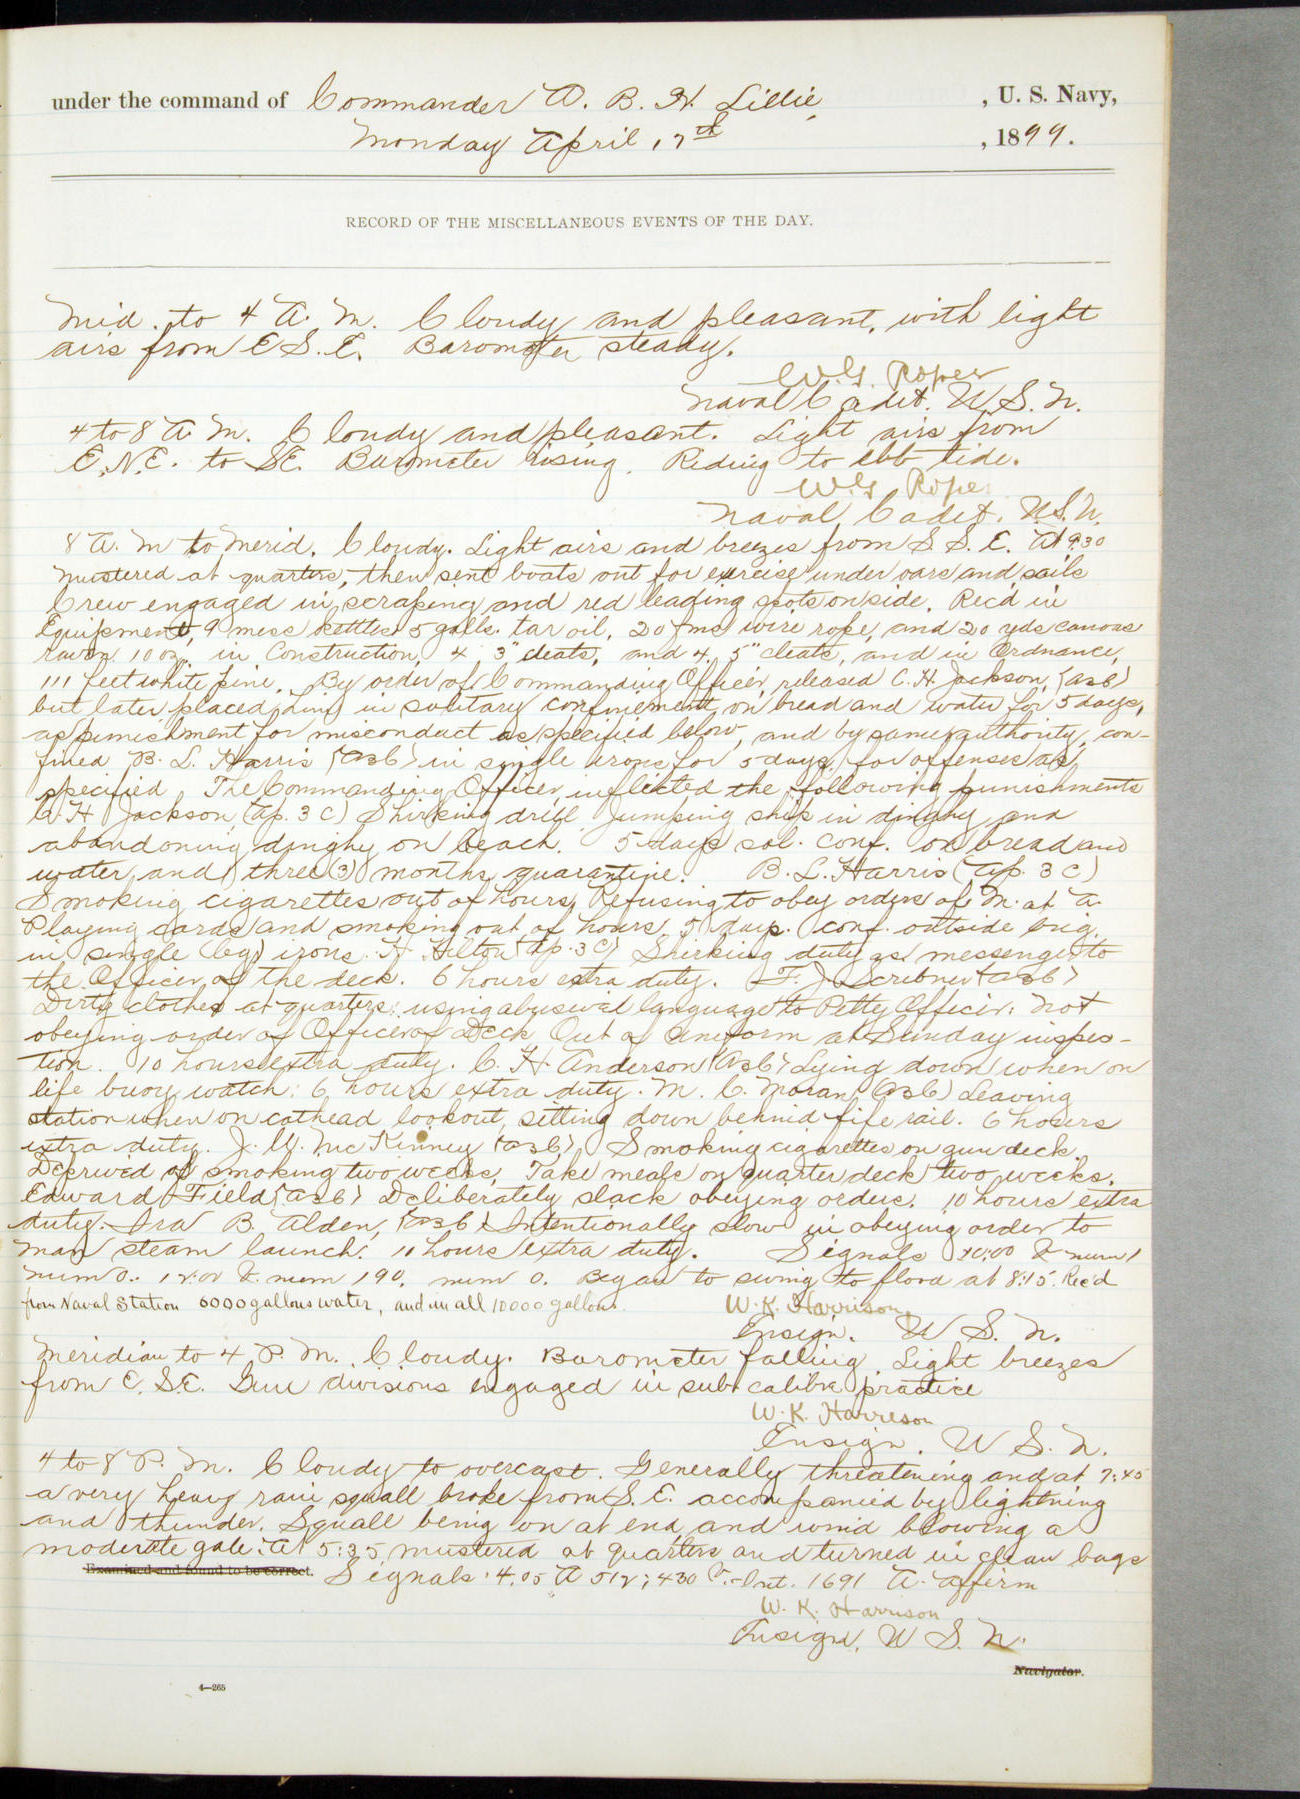 under the command of Commander A. B. H. Lillie, , U. S. Navy,
Monday April 17th , 1899.
RECORD OF THE MISCELLANEOUS EVENTS OF THE DAY.
Mid. to 4 A. M. Cloudy and pleasant, with light
airs from E.S.E. Barometer steady.
W.G. Roper
Naval Cadet. U.S.N.
4 to 8 A. M. Cloudy and pleasant. Light airs from
E.N.E. to SE. Barometer rising. Riding to ebb tide.
W.G. Roper
Naval Cadet. U.S.N.
8 A. M to Merid. Cloudy. Light airs and breezes from S. S. E. At 9:30
mustered at quarters, then sent boats out for exercise under oars and sails
Crew engaged in scraping and red leading spots on side. Rec'd in
Equipment, 9 mess kettles 5 galls. tar oil, 20 fms wire rope, and 20 yds canvas
raven 10 oz. in Construction, 4 3" cleats, and 4 5" cleats, and in Ordnance,
111 feet white pine. By order of Commanding Officer, released C. H. Jackson, (a3c)
but later placed him in solitary confinement on bread and water for 5 days,
as punishment for misconduct as specified below, and by same authority, con-
fined B. L. Harris (a3c) in single irons for 5 days, for offenses as
specified. The Commanding Officer inflicted the following punishments
C. H. Jackson, (ap. 3 C) Shirking drill Jumping ship in dinghy and
abandoning dinghy on beach. 5 days sol. conf. on bread and
water, and three (3) months quarantine. B. L. Harris (ap. 3 C)
Smoking cigarettes out of hours, Refusing to obey orders of M. at A.
Playing cards and smoking out of hours. 5 days. conf. outside brig,
in single (leg) irons. H. Hilton (ap. 3 C) Shirking duty as messenger to
the Officer of the deck. 6 hours extra duty. F. J. Scribner (a3c)
Dirty clothes at quarters: using abusive language to Petty Officer: not
obeying order of Officer of Deck Out of uniform at Sunday inspec-
tion. 10 hours extra duty. C. H. Anderson (a3c) Lying down when on
life buoy watch: 6 hours extra duty. M. C. Moran, (a3c) Leaving
station when on cathead lookout, sitting down behind fife rail. 6 hours
extra duty. J. W. McKinney (a3c) Smoking cigarettes on gun deck.
Deprived of smoking two weeks, Take meals on quarter deck two weeks.
Edward Field (a3c) Deliberately slack obeying orders. 10 hours extra
duty. Ira B. Alden, (a3c) Intentionally slow in obeying order to
man steam launch. 10 hours extra duty. Signals 10:00 num 1
num 0. 12:00 num 190, num 0. Began to swing to flood at 8:15. Rec'd
from Naval Station 6000 gallons water, and in all 10000 gallons.
W. K. Harrison,
Ensign. U. S. N.
Meridian to 4 P. M. Cloudy. Barometer falling. Light breezes
from E. S.E. Gun divisions engaged in sub calibre practice
W. K. Harrison
Ensign. U. S. N.
4 to 8 P. M. Cloudy to overcast. Generally threatening and at 7:45
a very heavy rain squall broke from S. E. accompanied by lightning
and thunder. Squall being on at end and wind blowing a
moderate gale. At 5:35 mustered at quarters and turned in clean bags
Examined and found to be correct. Signals: 4.05 A 512; 430 Int. 1691 A. affirm
W. K. Harrison
Ensign, U. S. N.
Navigator.
4—265